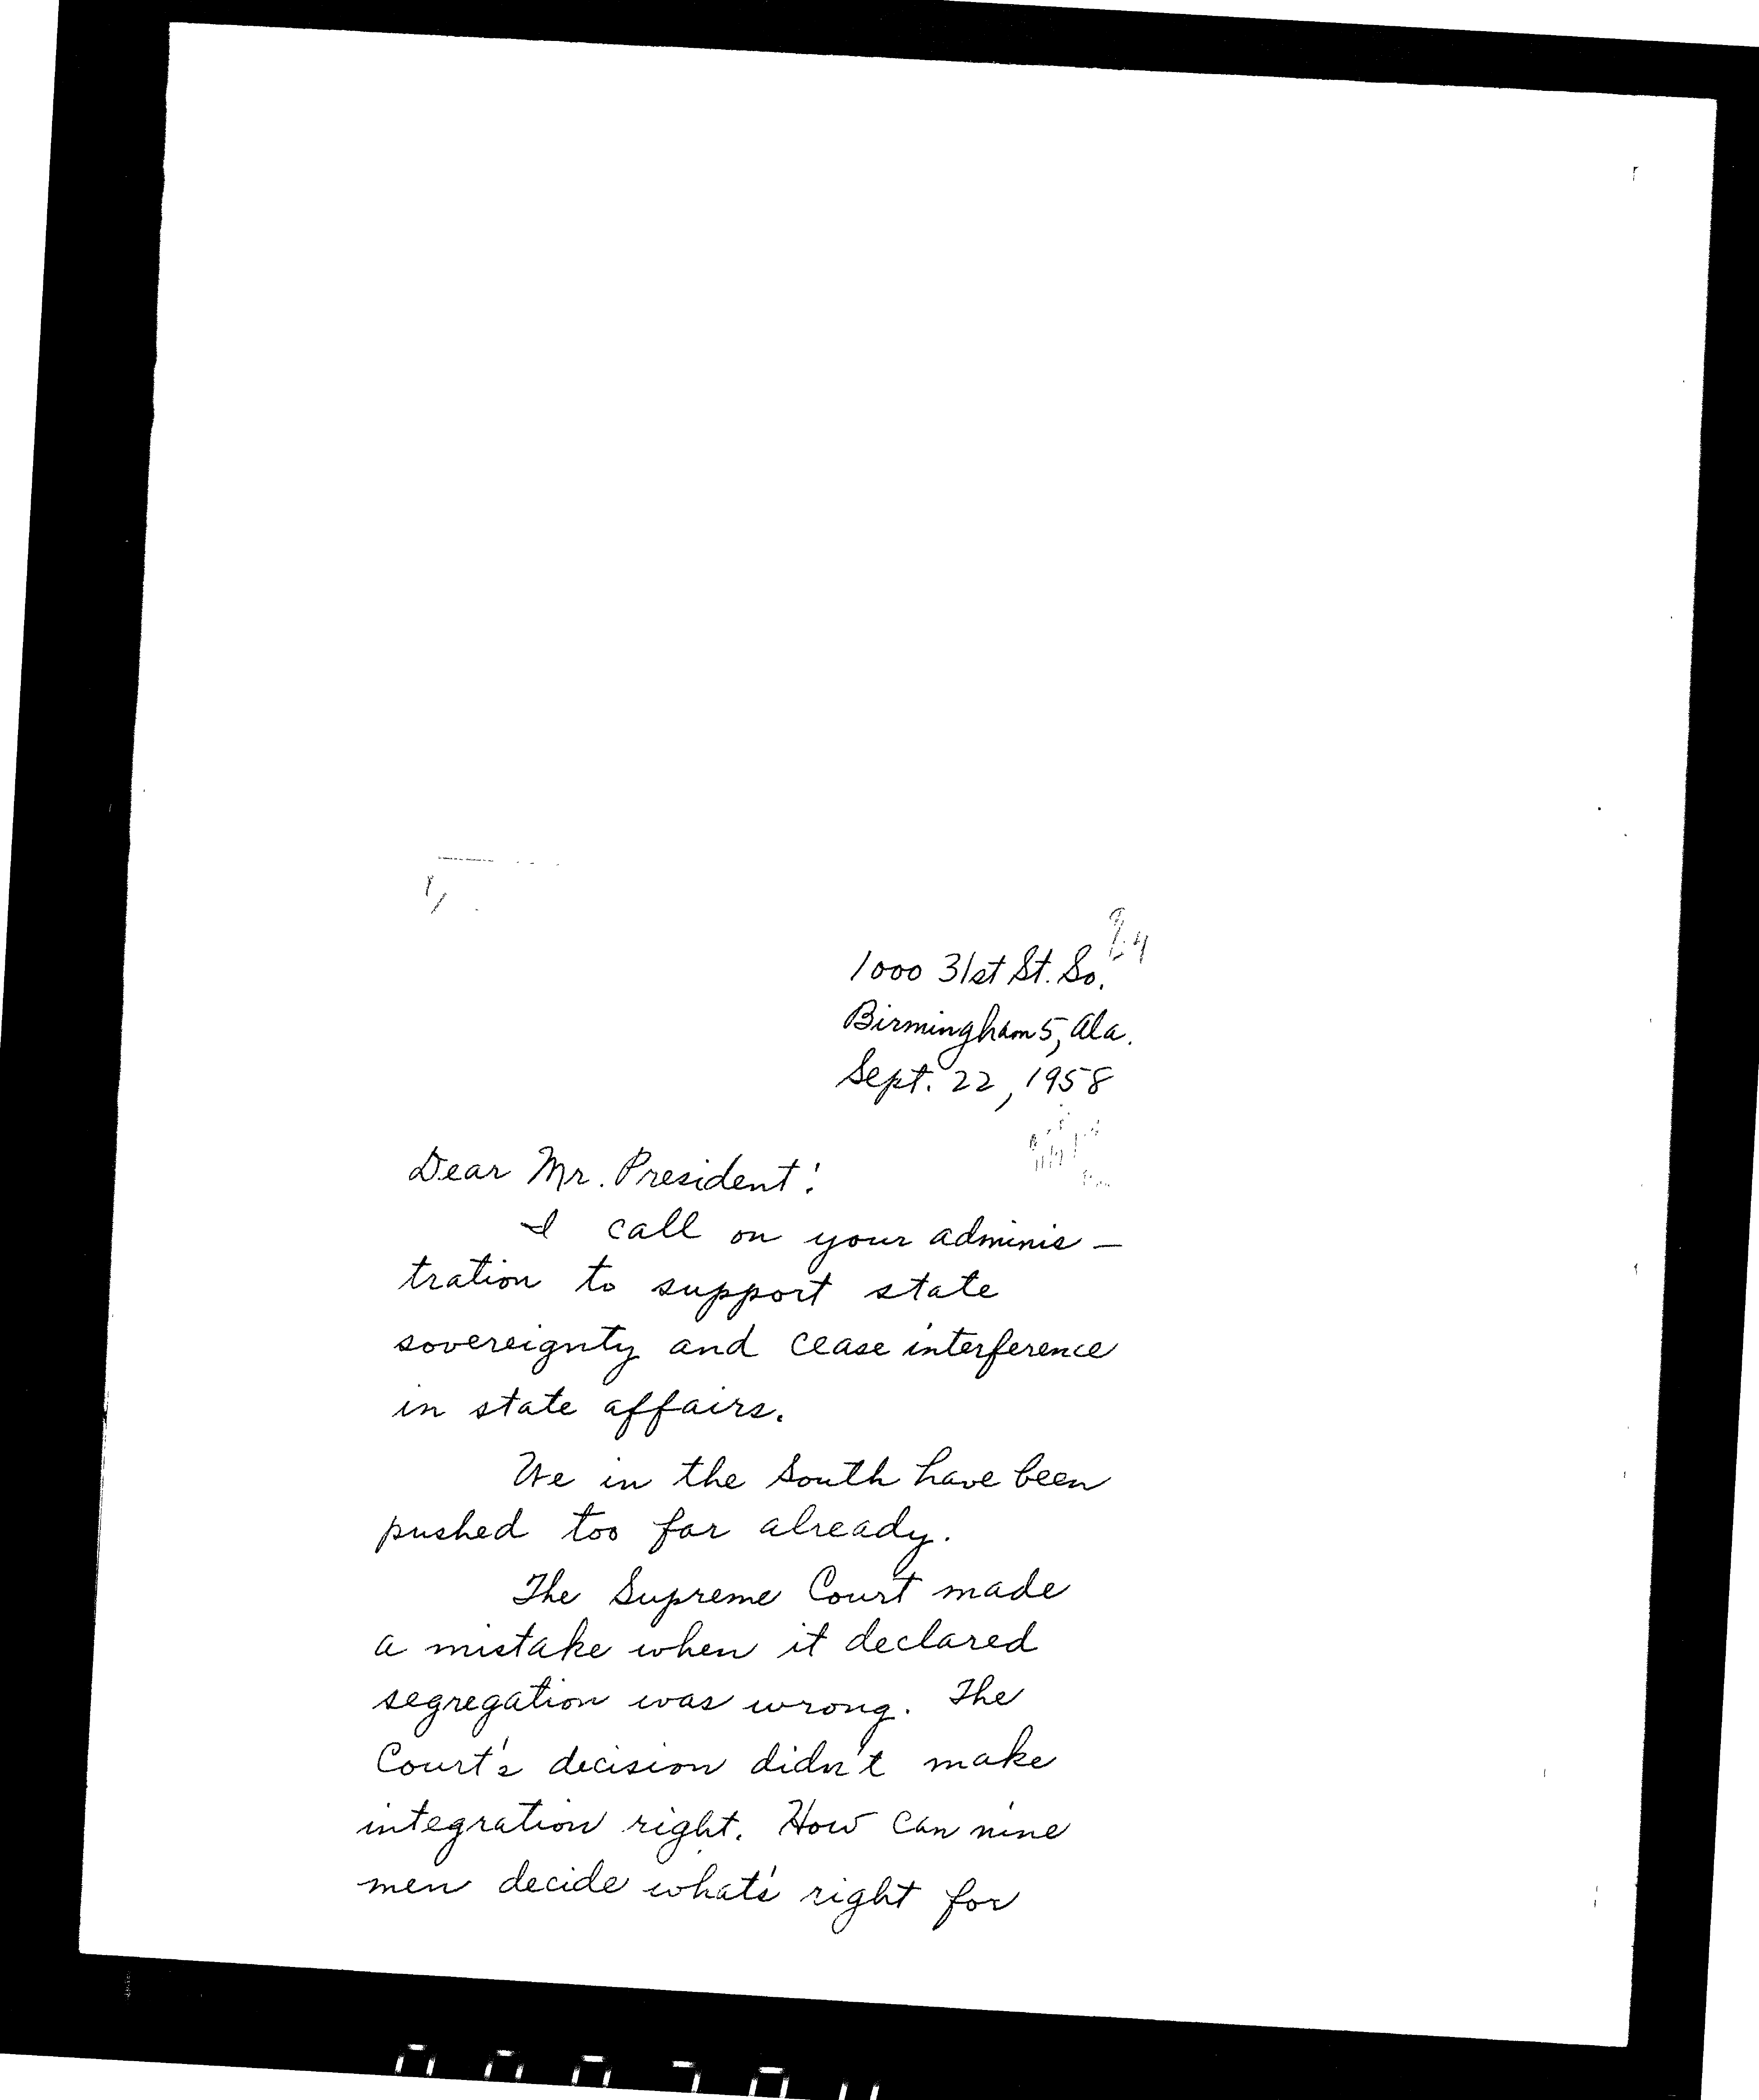 1000 31st St. So.
Birmingham 5, Ala.
Sept. 22, 1958
Dear Mr. President:
I call on your adminis-
tration to support state
sovereignty and cease interference
in state affairs.
We in the South have been
pushed too far already.
The Supreme Court made
a mistake when it declared
segregation was wrong. The
Court's decision didn't make
integration right. How can nine
men decide what's right for